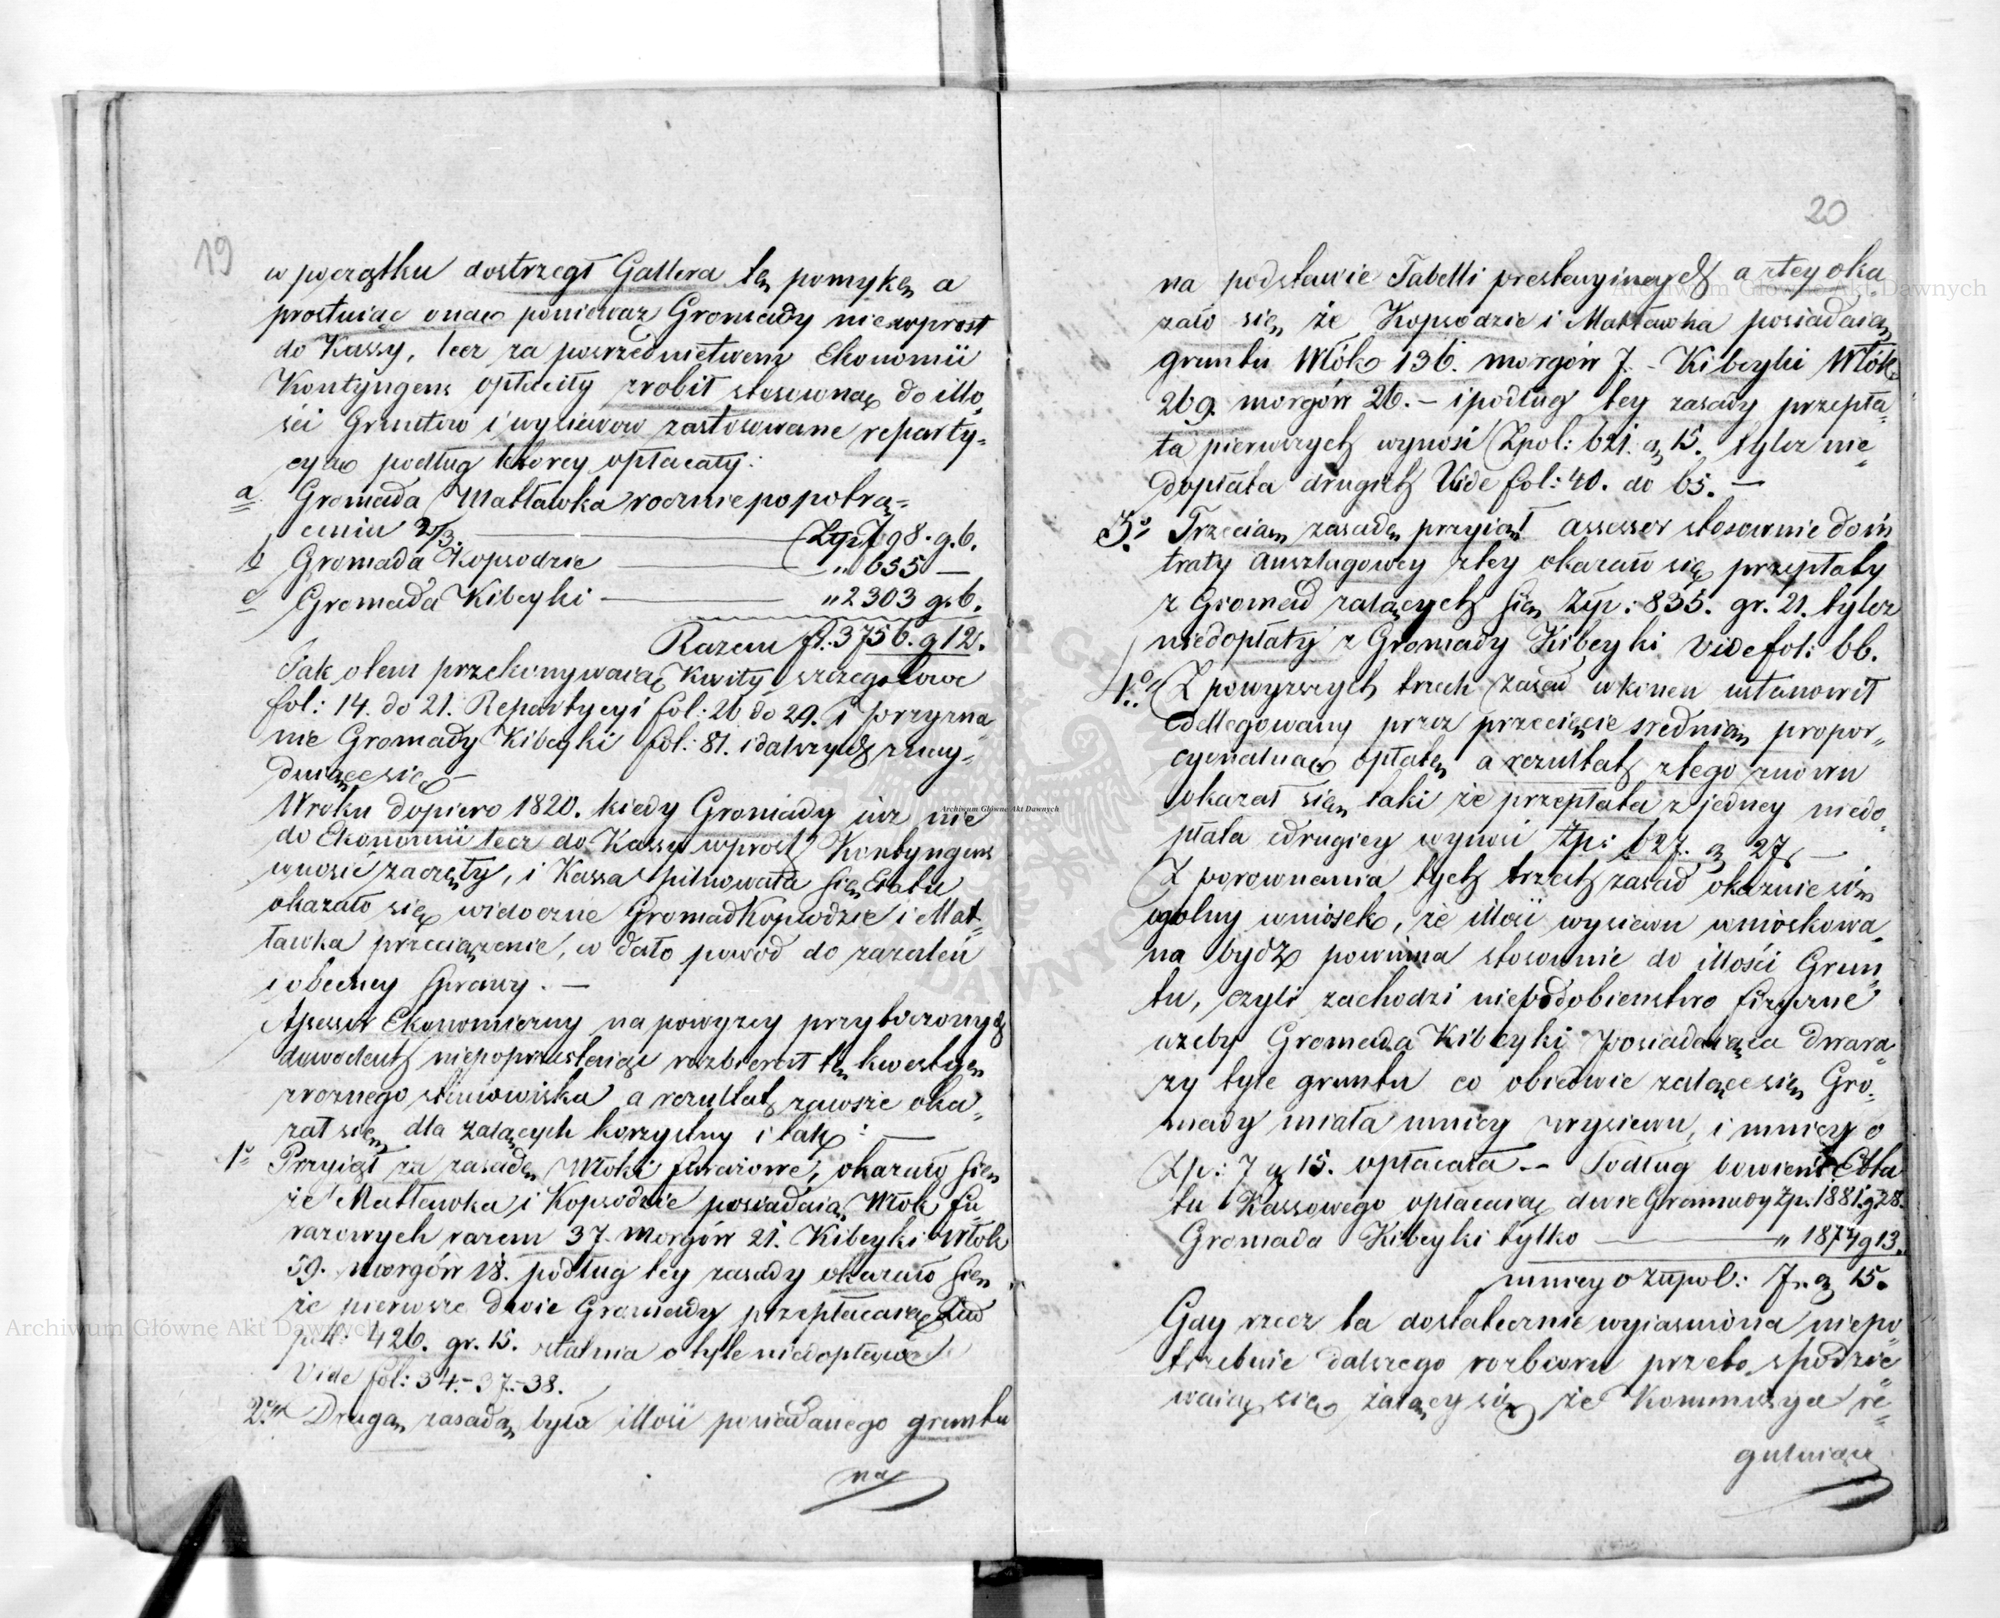 19
w początku dostrzegł Gallera tę pomykę a
prostuiąc onąę ponieważ Gromady nie wprost
do Kassy, lecz za posrzednictwem Ekonomii
Kontyngens opłaciły zrobił stosowną do illo„
ści Gruntów i wysiewow zastosowane reparty„
cyą podług ktorey opłacały:
a Gromada Małławka rocznie po potrą„
ceniu 2/3. — Złp. 798. g. 6.
b Gromada Kopsodzie — „ 655 —
c Gromada Kibeyki — „ 2303 g. 6.
Razem fl: 3756. g 12.
Jak o tem przekonywaią Kwity szczegołowe
fol: 14. do 21. Repartycyi fol: 26 do 29. i przyzna„
nie Gromady Kibeyki fol: 81. i dalszych znay„
duiące się —
W roku dopiero 1820. kiedy Gromady iuz nie
do Ekonomii lecz do Kassy wprost Kontyngens
wnosić zaczęły, i Kassa pilnowała się Etatu
okazało się widoczne Gromad Kopsodzie i Mał„
ławka przeciązenie, co dało powód do zazaleń
i obecney Sprawy. —
Assessor Ekonomiczny na powyzey przytoczonych
dowodach niepoprzestaiąc rozbierał tę kwestyę
z roznego stanowiska a rezultat zawsze oka„
zał się dla zalących korzystny i tak: —
1o Przyiął za zasadę Włoki furazowe, okazało się
że Małławka i Kopsodzie posiadaią Włok fu„
razowych razem 37. morgów 21. Kibeyki Włok
59. morgów 18. podług tey zasady okazało się
że pierwsze dwie Gromady przepłacaią
426. gr. 15. ostatnia o tyle niedopłaca
Vide fol: 34.-37.-38.
2do Drugą zasadą była illość posiadanego gruntu
na
20
na podstawie Tabelli prestacyinych a ztey oka
zało się że Kopsodzie i Małławka posiadaią
gruntu Włók 136. morgów 7. - Kibeyki Włók
269. morgów 26. — i podług tey zasady przepła„
ta pierwszych wynosi Złpol: 621. g 15. tyleż nie„
dopłata drugich Vide fol: 40. do 65. —
3o Trzecią zasadę przyiął assessor stosownie do in
traty Anszlagowey z tey okazało się przepłaty
z Gromad zalących się Złp: 835. gr. 21. tyleż
niedopłaty z Gromady Kibeyki Vide fol: 66.
4o Z powyzszych trzech zasad w koncu ustanowił
Delegowany przez przecięcie srednią propor„
cyonalną opłatę a rezultat z tego znowu
okazał się taki że przepłata z jedney niedo„
płata z drugiey wynosi Złp: 627. g 27. —
Z porownania tych trzech zasad okazuie się
ogolny wniosek, że illość wysiewu wnioskowa„
na bydź powinna stosownie do illości Grun„
tu, czyli zachodzi niepodobienstwo fizyczne
azeby Gromada Kibeyki posiadaiąca dwara„
zy tyle gruntu co obiedwie zalące się Gro„
mady miała mniey wysiewu, i mniey o
Złp: 7 g 15. opłacała. — Podług bowiem Etta
tu Kassowego opłacaią dwie Gromady Złp. 1881. g 28.
Gromada Kibeyki tylko — „ 1874 g 13.
mniey o Złpol: 7. g 15.
Gdy rzecz ta dostatecznie wyiasniona niepo„
trzebuie dalszego rozbioru przeto spodzie„
waią się zalący się że Kommissya re„
guluiąc